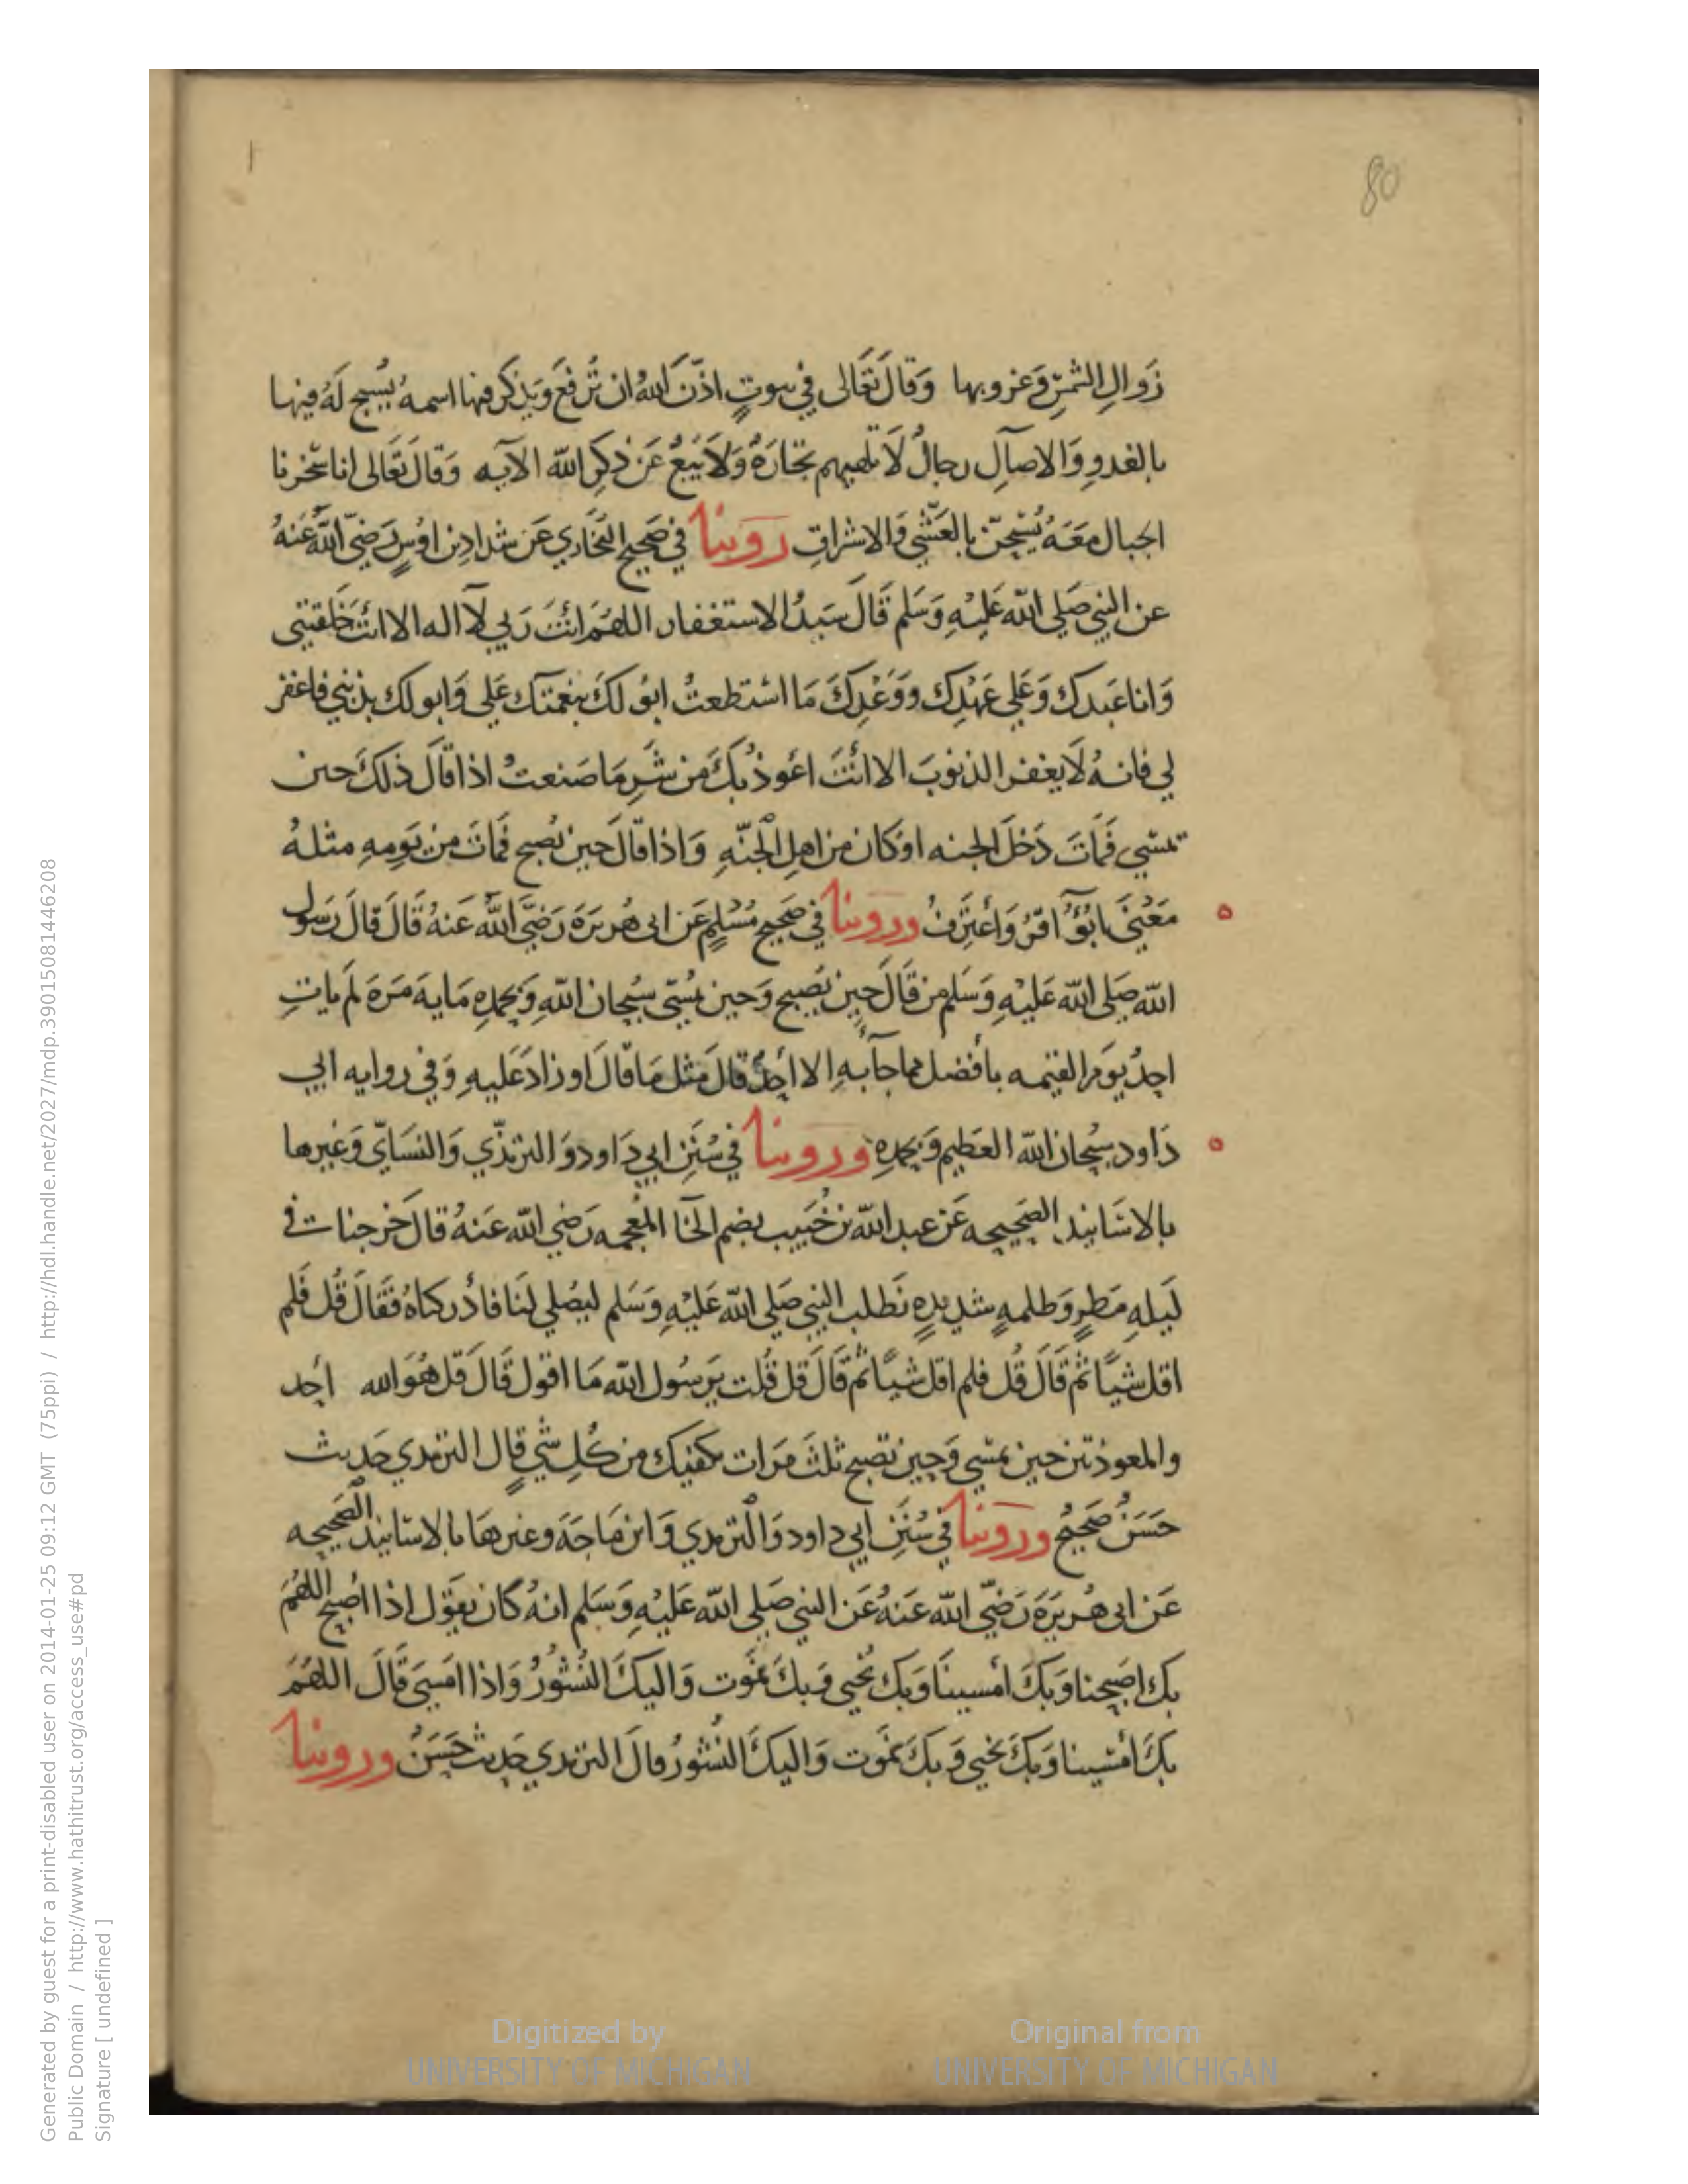 80
زَوالِ الشمسِ وَغروبها وَقالَ تعَالى في بيوتٍ اذنَ اللهُ ان تُرفعَ وَيذكر فيها اسمهُ يُسبح لَهُ فيها
بالغدوِ وَالاصآلِ رجالٌ لَا تلهيهم تجارَةٌ وَلَا بَيعٌ عَن ذكرِ الله الآيه وَقالَ تعَالى انا سَخرنا
الجبال مَعَهُ يُسَبحنَ بالعَشي وَالاشراقِ روينا في صَحيح البُخاري عَن شداد بن اوسٍ رَضيَ اللهُ عَنهُ
عن النبي صَلى الله عَليْهِ وَسَلم قَالَ سَيدُ الاستغفار اللهُمَ انتَ رَبي لَا اله الا انتَ خَلقتني
وَانا عَبدك وَعَلى عَهْدِك وَوَعْدِكَ مَا استطعتُ ابؤ لكَ بنعمتك عَلي وَابو لك بذنبي فاغفر
لي فانهُ لَا يغفر الذنوبَ الا انتَ اعوذ بكَ من شَرِ مَا صَنعتُ اذا قالَ ذلكَ حين
تمسي فَماتَ دَخلَ الجنه اوكان من اهلِ الجَنّهِ وَاذا قالَ حين تصبح فماتَ من يَومِهِ مثلهُ
مَعْنَى ابُؤُ اقرُ وَأعتَرفُ وروينا في صَحيح مُسْلمٍ عَن ابى هُريرَةَ رَضيَ اللهُ عَنهُ قَالَ قالَ رَسول
الله صَلى الله عَليْهِ وَسَلم من قَالَ حين تصبح وَحين تمسي سُبحان اللهِ وَبحمدِهِ مَايةَ مَرَةٍ لَم ياتِ
احدٌ يَومَ القيمه بأفضل مما جآء بهِ الا أحدٌ قالَ مثل مَا قالَ او زادَ عَليهِ وَفي روايه ابي
دَاود سبحان الله العَظيم وَبحمدِهِ وروينا في سُنَنِ ابي دَاود وَالترمذي وَالنسَايّ وَغيرها
بالاسَانيد الصَحيحه عَن عبد الله بن خُبَيب بضم الخَا المعجمه رَضي الله عَنهُ قالَ خرجنات في
لَيلهِ مَطرٍ وَظلمهٍ شديدهٍ نَطلب النبي صَلى الله عَليْهِ وَسَلم ليصَلي لنَا فادْركناهُ فقَالَ قُل فَلم
اقل شيًا ثمَ قالَ قُل فلم اقل شيًا ثمَ قَالَ قل قُلت يَرسُول الله مَا اقول قَالَ قل هُوَ الله أحد
والمعوذتين حين تمسي وَحين تصبح ثلثَ مَرَات تكفيك من كُلِ شيٍ قال الترمدي حَديث
حَسَنٌ صَحيحٌ وروينا في سُنَنِ ابي داود وَالترمدي وَابن مَاجَة وغيرهَا بالاسانيد الصَحيحه
عَن ابى هُريرَةَ رَضيَ الله عَنهُ عَن النبي صَلى الله عَليْهِ وَسَلم انهُ كان يقول اذا اصبح اللهُمَ
بك اصبحنا وَبكَ أمسينَا وَبك نُحيى وَبكَ نموت وَاليكَ النُشورُ وَاذا امسَى قَالَ اللهُمَ
بكَ أمسينا وَبكَ نحيى وَبكَ نموت وَاليكَ النُشورُ وقالَ الترمدي حَديث حَسَنٌ وروينا
Digitized by
UNIVERSITY OF MICHIGAN
Original from
UNIVERSITY OF MICHIGAN
Generated by guest for a print-disabled user on 2014-01-25 09:12 GMT (75ppi) / http://hdl.handle.net/2027/mdp.39015081446208
Public Domain / http://www.hathitrust.org/access_use#pd
Signature [ undefined ]